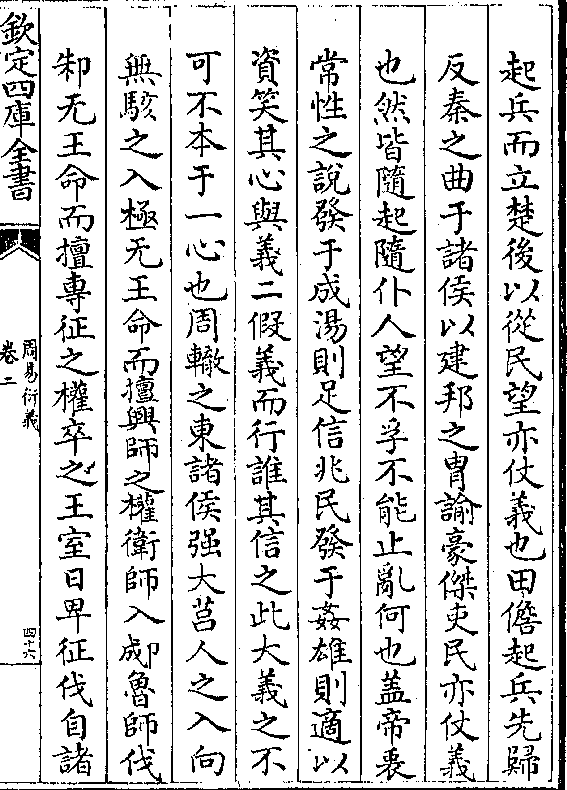 起兵而立楚後以從民望亦仗義也田儋起兵先歸
反秦之曲于諸侯以建邦之胄諭豪傑吏民亦仗義
也然皆隨起隨仆人望不孚不能止亂何也蓋帝衷
常性之說發于成湯則足信兆民發于姦雄則適以
資笑其心與義二假義而行誰其信之此大義之不
可不本于一心也周轍之東諸侯强大莒人之入向
無駭之入極无王命而擅興師之權衛師入郕魯師伐
邾无王命而擅專征之權卒之王室日卑征伐自諸
欽定四庫全書
周易衍義
卷二
四十六